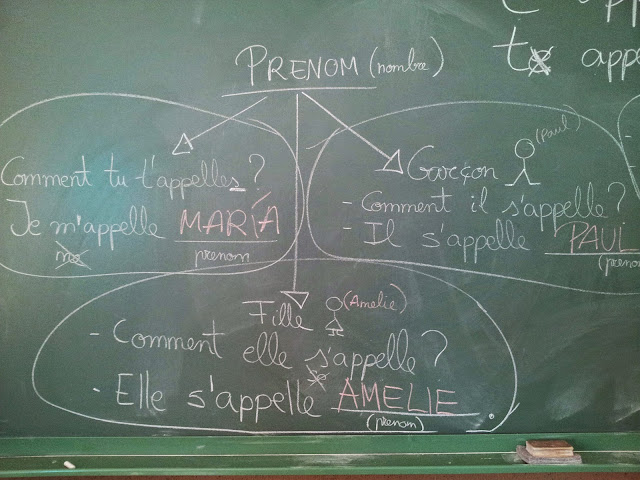 PRENOM (nombre)
Comment tu t'appelles?
Je m'appelle MARÍA
me
prenom
Garçon (Paul)
- Comment il s'appelle?
- Il s'appelle PAUL
(prenom)
Fille (Amelie)
- Comment elle s'appelle?
se
- Elle s'appelle AMELIE.
(prenom)
te appe